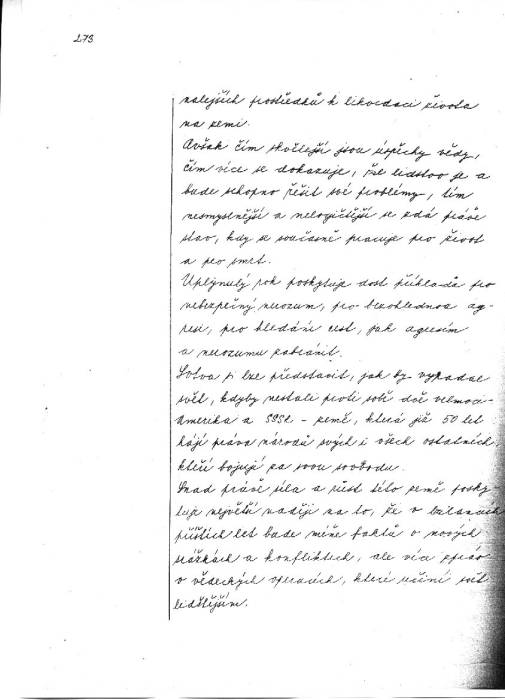 273
nalejších prostředků k likvidaci života
na zemi.
Avšak čím skvělejší jsou úspěchy vědy,
čím více se dokazuje, že lidstvo je a
bude schopno řešit své problémy, tím
nesmyslnější a nelogičtější se zdá právě
stav, kdy se současně pracuje pro život
a pro smrt.
Uplynulý rok poskytuje dost příkladů pro
nebezpečný nerozum, pro bezohlednou ag-
resi, pro hledání cest, jak agresím
a nerozumu zabránit.
Sotva si lze představit, jak by vypadal
svět, kdyby nestála proti sobě dvě velmoci -
Amerika a SSSR - země, která již 50 let
hájí práva národů svých i všech ostatních,
kteří bojují za svou svobodu.
Snad právě síla a růst této země posky-
tují největší naději na to, že v bilancích
příštích let bude méně faktů o nových
srážkách a konfliktech, ale více zpráv
o vědeckých výpravách, které učiní svět
lidštějším.